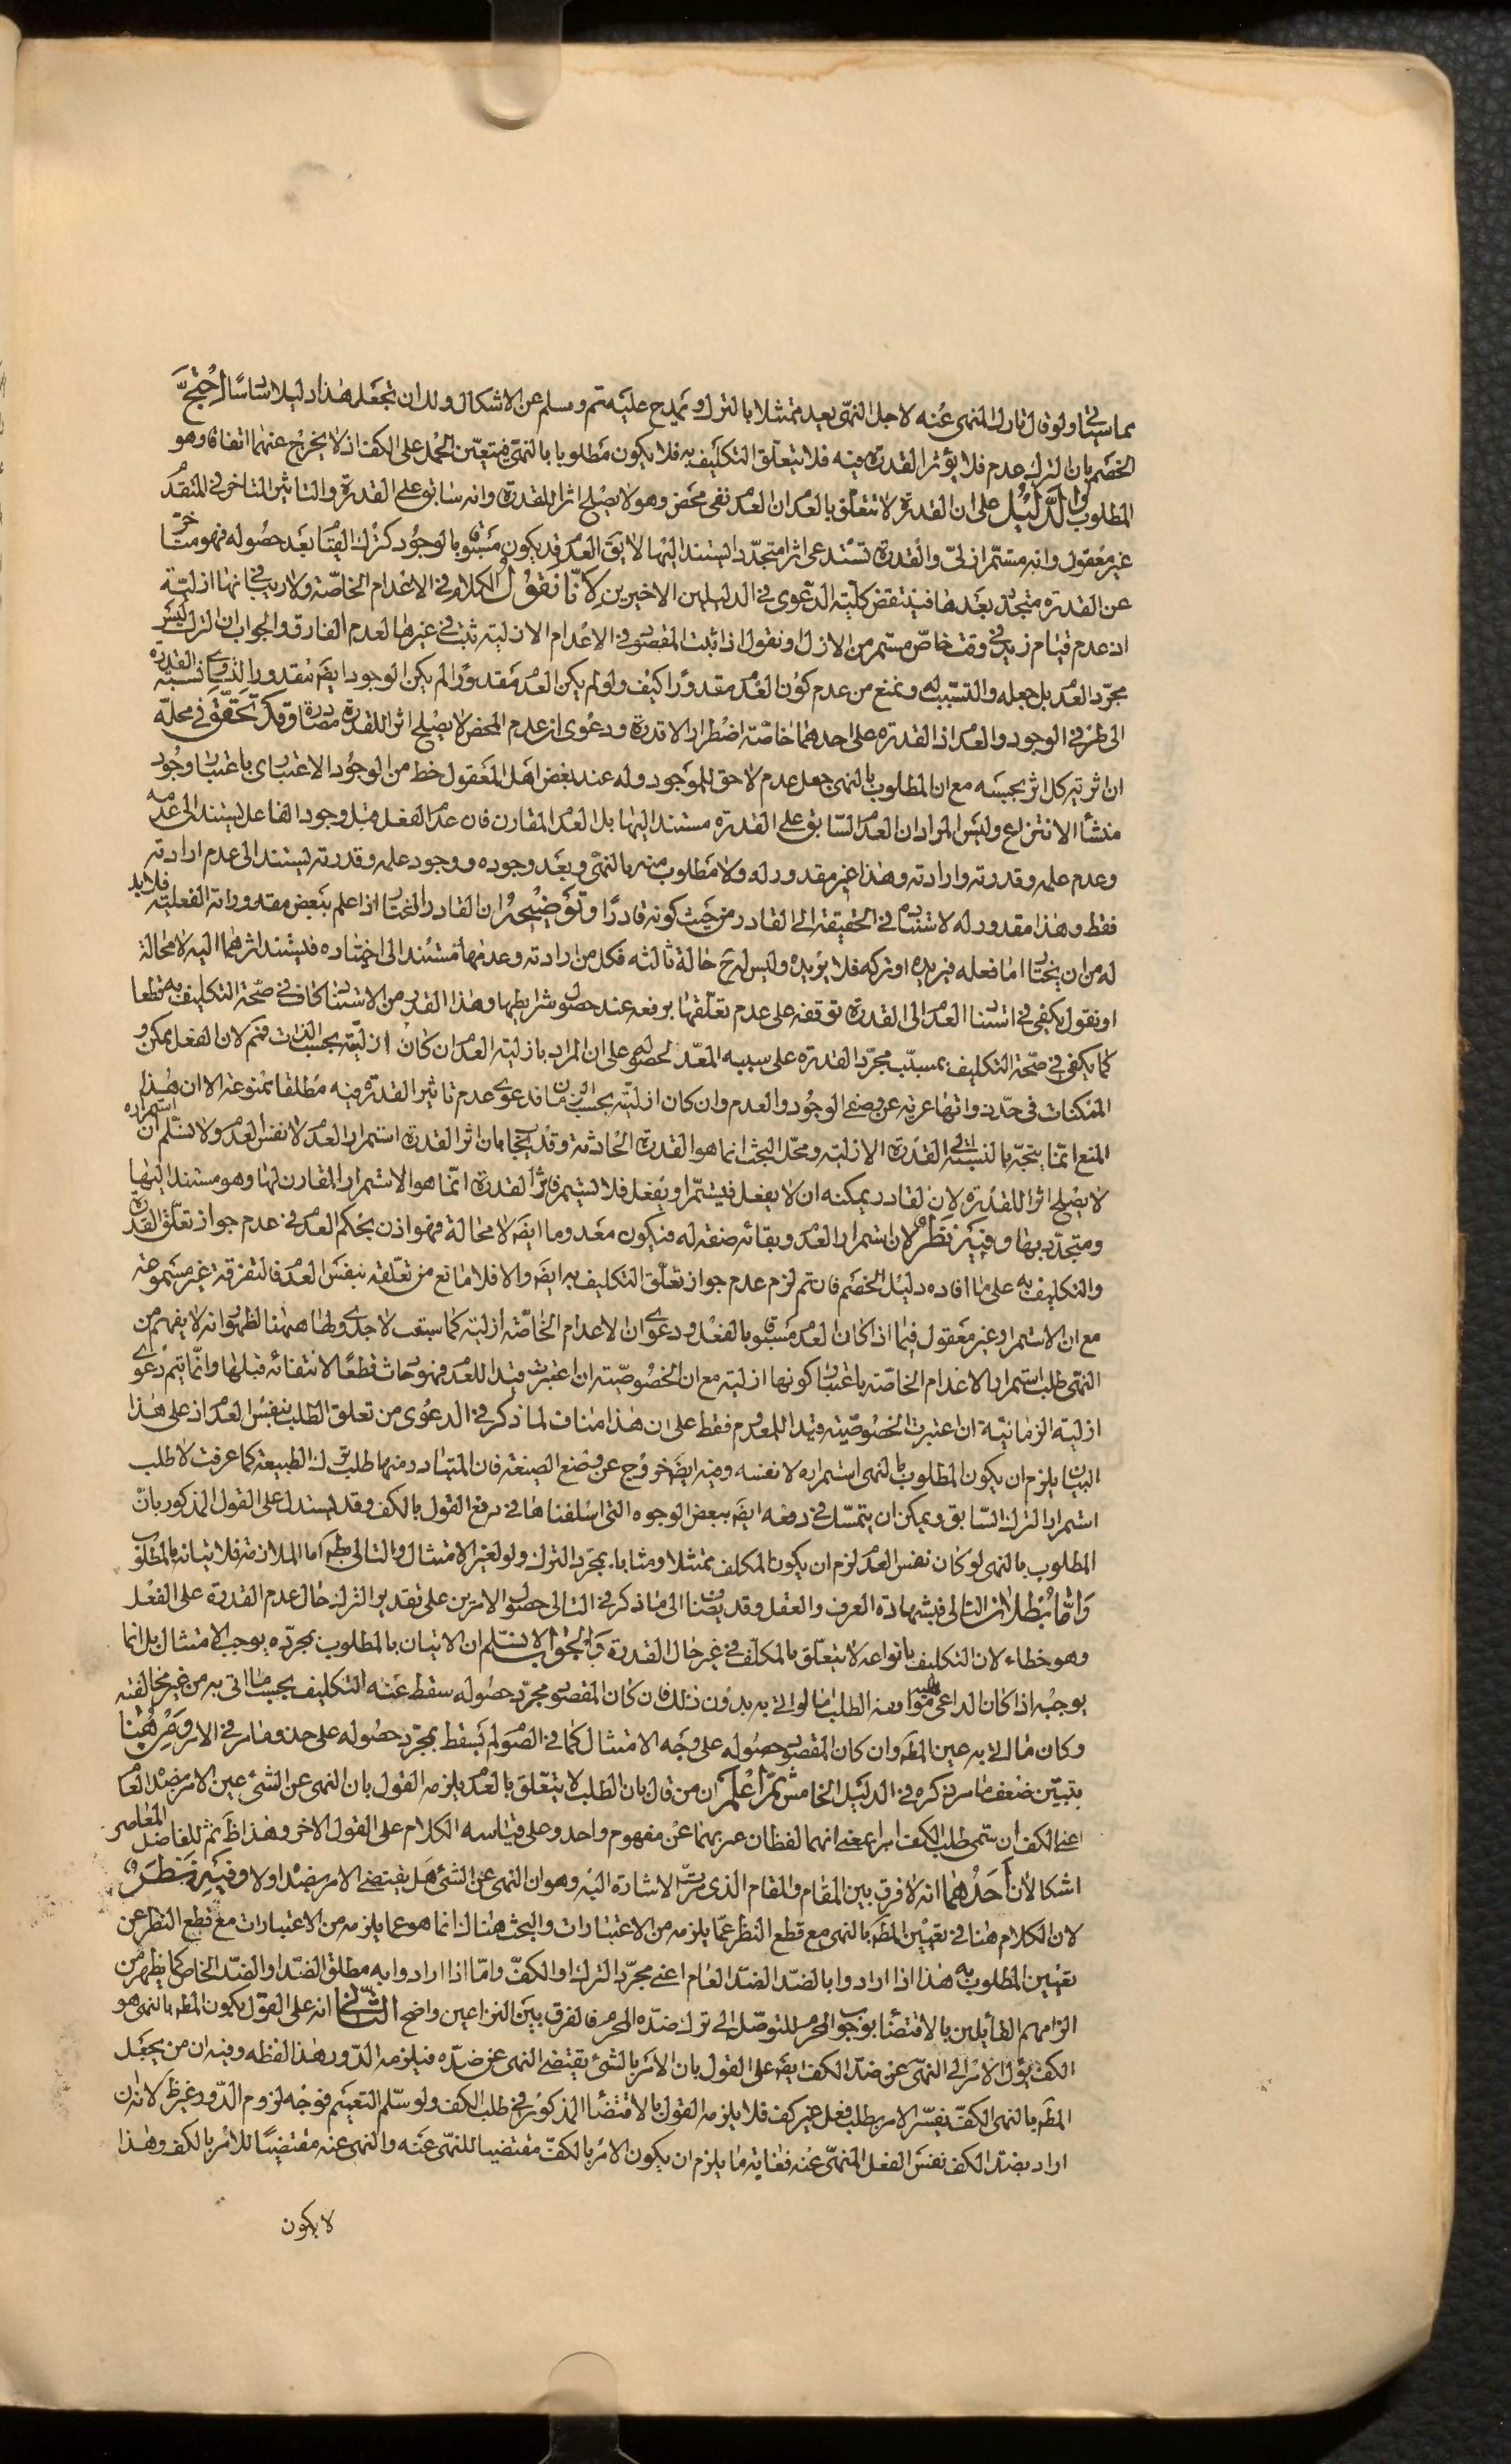 مما سيأتي ولو قال تارك المنهي عنه لاجل النهي يعد ممتثلا بالترك ويمدح عليه تم وسلم عن الاشكال ولك ان تجعل هذا دليلا سادسا احتج
الخصم بان الترك عدم فلا يؤثر القدرة فيه فلا يتعلق التكليف به فلا يكون مطلوبا بالنهي فيتعين الحمل على الكف اذ لا يخرج عنهما اتفاقا وهو
المطلوب لنا الدليل على ان القدرة لا تتعلق بالعدم ان العدم نفي محض وهو لا يصلح اثرا للقدرة وانه سابق على القدرة والتاثير المتاخر في المتقدم
غير معقول وانه مستمر ازلي والقدرة تستدعي اثرا متجددا يستند اليها لا يق العدم قد يكون مسبوقا بالوجود كترك القيام بعد حصوله فهو متاخر
عن القدرة متجدد بعدها فينتقض كلية الدعوى في الدليلين الاخيرين لانا نقول الكلام في الاعدام الخاصة ولا ريب في انها ازلية
اذ عدم قيام زيد في وقت خاص مستمر من الازل او نقول اذا ثبت المقصود في الاعدام الازلية ثبت في غيرها لعدم الفارق والجواب ان الترك ليس
مجرد العدم بل جعله والتسبب له ونمنع من عدم كون العدم مقدورا كيف ولو لم يكن العدم مقدورا لم يكن الوجود ايضا مقدورا لتساوي نسبة القدرة
الى طرفي الوجود والعدم اذ القدرة على احدهما خاصة اضطرار لا قدرة ودعوى ان عدم المحض لا يصلح اثرا للقدرة مصادرة وقد تحقق في محله
ان اثرية كل اثر بحسبه مع ان المطلوب بالنهي جعل عدم لاحق للموجود وله عند بعض اهل المعقول حظ من الوجود الاعتباري باعتبار وجود
منشأ الانتزاع وليس المراد ان العدم السابق على القدرة مستند اليها بل العدم المقارن فان عدم الفعل قبل وجود الفاعل يستند الى عدمه
وعدم علمه وقدرته وارادته وهذا غير مقدور له ولا مطلوب منه بالنهي وبعد وجوده ووجود علمه وقدرته يستند الى عدم ارادته
فقط وهذا مقدور له لاستناده في الحقيقة الى القادر من حيث كونه قادرا وتوضيحه ان القادر المختار اذا علم ببعض مقدوراته الفعلية فلا بد
له من ان يختار اما فعله فيريده او تركه فلا يريده وليس له ح حالة ثالثة فكل من ارادته وعدمها مستند الى اختياره فيستند اثرهما اليه لا محالة
او نقول يكفي في استناد العدم الى القدرة توقفه على عدم تعلقها برفعه عند حصول شرايطها وهذا القدر من الاستناد كاف في صحة التكليف به قطعا
كما يكفي في صحة التكليف بمسبب مجرد القدرة على سببه المعد لحصوله على ان المراد بازلية العدم ان كان ازليته بحسب الذات فمم لان الفعل ممكن و
الممكنات في حد ذواتها عرية عن وصفي الوجود والعدم وان كان ازليته بحسب الزمان فدعوى عدم تاثير القدرة فيه مطلقا ممنوعة الا ان هذا
المنع انما يتجه بالنسبة الى القدرة الازلية ومحل البحث انما هو القدرة الحادثة وقد يجاب بان اثر القدرة استمرار العدم لا نفس العدم ولا نسلم ان استمراره
لا يصلح اثرا للقدرة لان القادر يمكنه ان لا يفعل فيستمر او يفعل فلا يستمر فاثر القدرة انما هو الاستمرار المقارن لها وهو مستند اليها
ومتجدد بها وفيه نظر لان استمرار العدم وبقائه صفة له فيكون معدوما ايضا لا محالة فهو اذن بحكم العدم في عدم جواز تعلق القدرة
والتكليف به على ما افاده دليل الخصم فان تم لزم عدم جواز تعلق التكليف به ايضا والا فلا مانع من تعلقه بنفس العدم فالتفرقة غير مسموعة
مع ان الاستمرار غير معقول فيما اذا كان العدم مسبوقا بالفعل ودعوى ان الاعدام الخاصة ازلية كما سبقت لا جدوى لها ههنا لظهور انه لا يفهم من
النهي طلب استمرار الاعدام الخاصة باعتبار كونها ازلية مع ان الخصوصية ان اعتبرت قيدا للعدم فهو حادث قطعا لانتفائه قبلها وانما يتم دعوى
ازلية الزمانية ان اعتبرت الخصوصية قيدا للمعدوم فقط على ان هذا مناف لما ذكر في الدعوى من تعلق الطلب بنفس العدم اذ على هذا
البيان يلزم ان يكون المطلوب بالنهي استمراره لا نفسه وفيه ايضا خروج عن وضع الصيغة فان المتبادر منها طلب ترك الطبيعة كما عرفت لا طلب
استمرار الترك السابق ويمكن ان يتمسك في دفعه ايضا ببعض الوجوه التي اسلفناها في دفع القول بالكف وقد يستدل على القول المذكور بان
المطلوب بالنهي لو كان نفس العدم لزم ان يكون المكلف ممتثلا ومثابا بمجرد الترك ولو لغير الامتثال والتالي بط اما الملازمة فلاتيانه بالمطلوب
واما بطلان التالي فبشهادة العرف والعقل وقد يضاف الى ما ذكر في التالي حصول الامرين على تقدير الترك حال عدم القدرة على الفعل
وهو خطاء لان التكليف بانواعه لا يتعلق بالمكلف في غير حال القدرة والجواب لا نسلم ان الاتيان بالمطلوب بمجرده يوجب الامتثال بل انما
يوجبه اذا كان الداعي اليه موافقة الطلب اما لو اتى به بدون ذلك فان كان المقصود مجرد حصوله سقط عنه التكليف بحسب ما اتى به من غير مخالفته
وكان ما اتى به عين المط وان كان المقصود حصوله على وجه الامتثال كما في الصوم لم يسقط بمجرد حصوله على حذو ما مر في الامر ومن هنا
يتبين ضعف ما مر ذكره في الدليل الخامس ثم اعلم ان من قال بان الطلب لا يتعلق بالعدم يلزمه القول بان النهي عن الشئ عين الامر بضده العام
اعني الكف ان سمى طلب الكف امرا بمعنى انهما لفظان عبر بهما عن مفهوم واحد وعلى قياسه الكلام على القول الاخر وهذا ظ ثم للفاضل المعاصر
اشكالان احدهما انه لا فرق بين المقام والمقام الذي مرت الاشارة اليه وهو ان النهي عن الشئ هل يقتضي الامر بضده اولا وفيه نظر
لان الكلام هنا في تعيين المط بالنهي مع قطع النظر عما يلزمه من الاعتبارات والبحث هناك انما هو عما يلزمه من الاعتبارات مع قطع النظر عن
تعيين المطلوب به هذا اذا ارادوا بالضد الضد العام اعني مجرد الترك او الكف واما اذا ارادوا به مطلق الضد او الضد الخاص كما يظهر من
الزامهم القائلين بالاقتضاء بوجوب المحرم للتوصل الى ترك ضده المحرم فالفرق بين النزاعين واضح الثاني انه على القول بكون المط بالنهي هو
الكف يؤل الامر الى النهي عن ضد الكف ايضا على القول بان الامر بالشئ يقتضي النهي عن ضده فيلزمه الدور هذا لفظه وفيه ان من يجعل
المط بالنهي الكف يفسر الامر بطلب فعل غير كف فلا يلزمه القول بالاقتضاء المذكور في طلب الكف ولو سلم التعميم فوجه لزوم الدور غير ظ لانه ان
اراد بضد الكف نفس الفعل المنهي عنه فغاية ما يلزم ان يكون الامر بالكف مقتضيا للنهي عنه والنهي عنه مقتضيا للامر بالكف وهذا
لا يكون